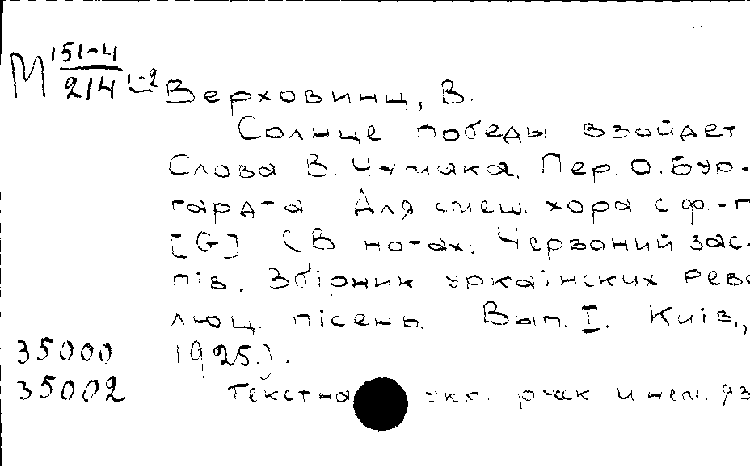 М 151-4/214 1-2
Верховинц, В.
Солнце победы взойдет
Слова В. Чумака. Пер. О. Бур-
гардта Для смеш. хора с ф.-п
[G] (В нотах: Червоний зас-
пів. Збірник украінских рево
люц. пісень. Вип. I. Київ,,
35000 1925.).
35002 Текст на укр. и нем. яз